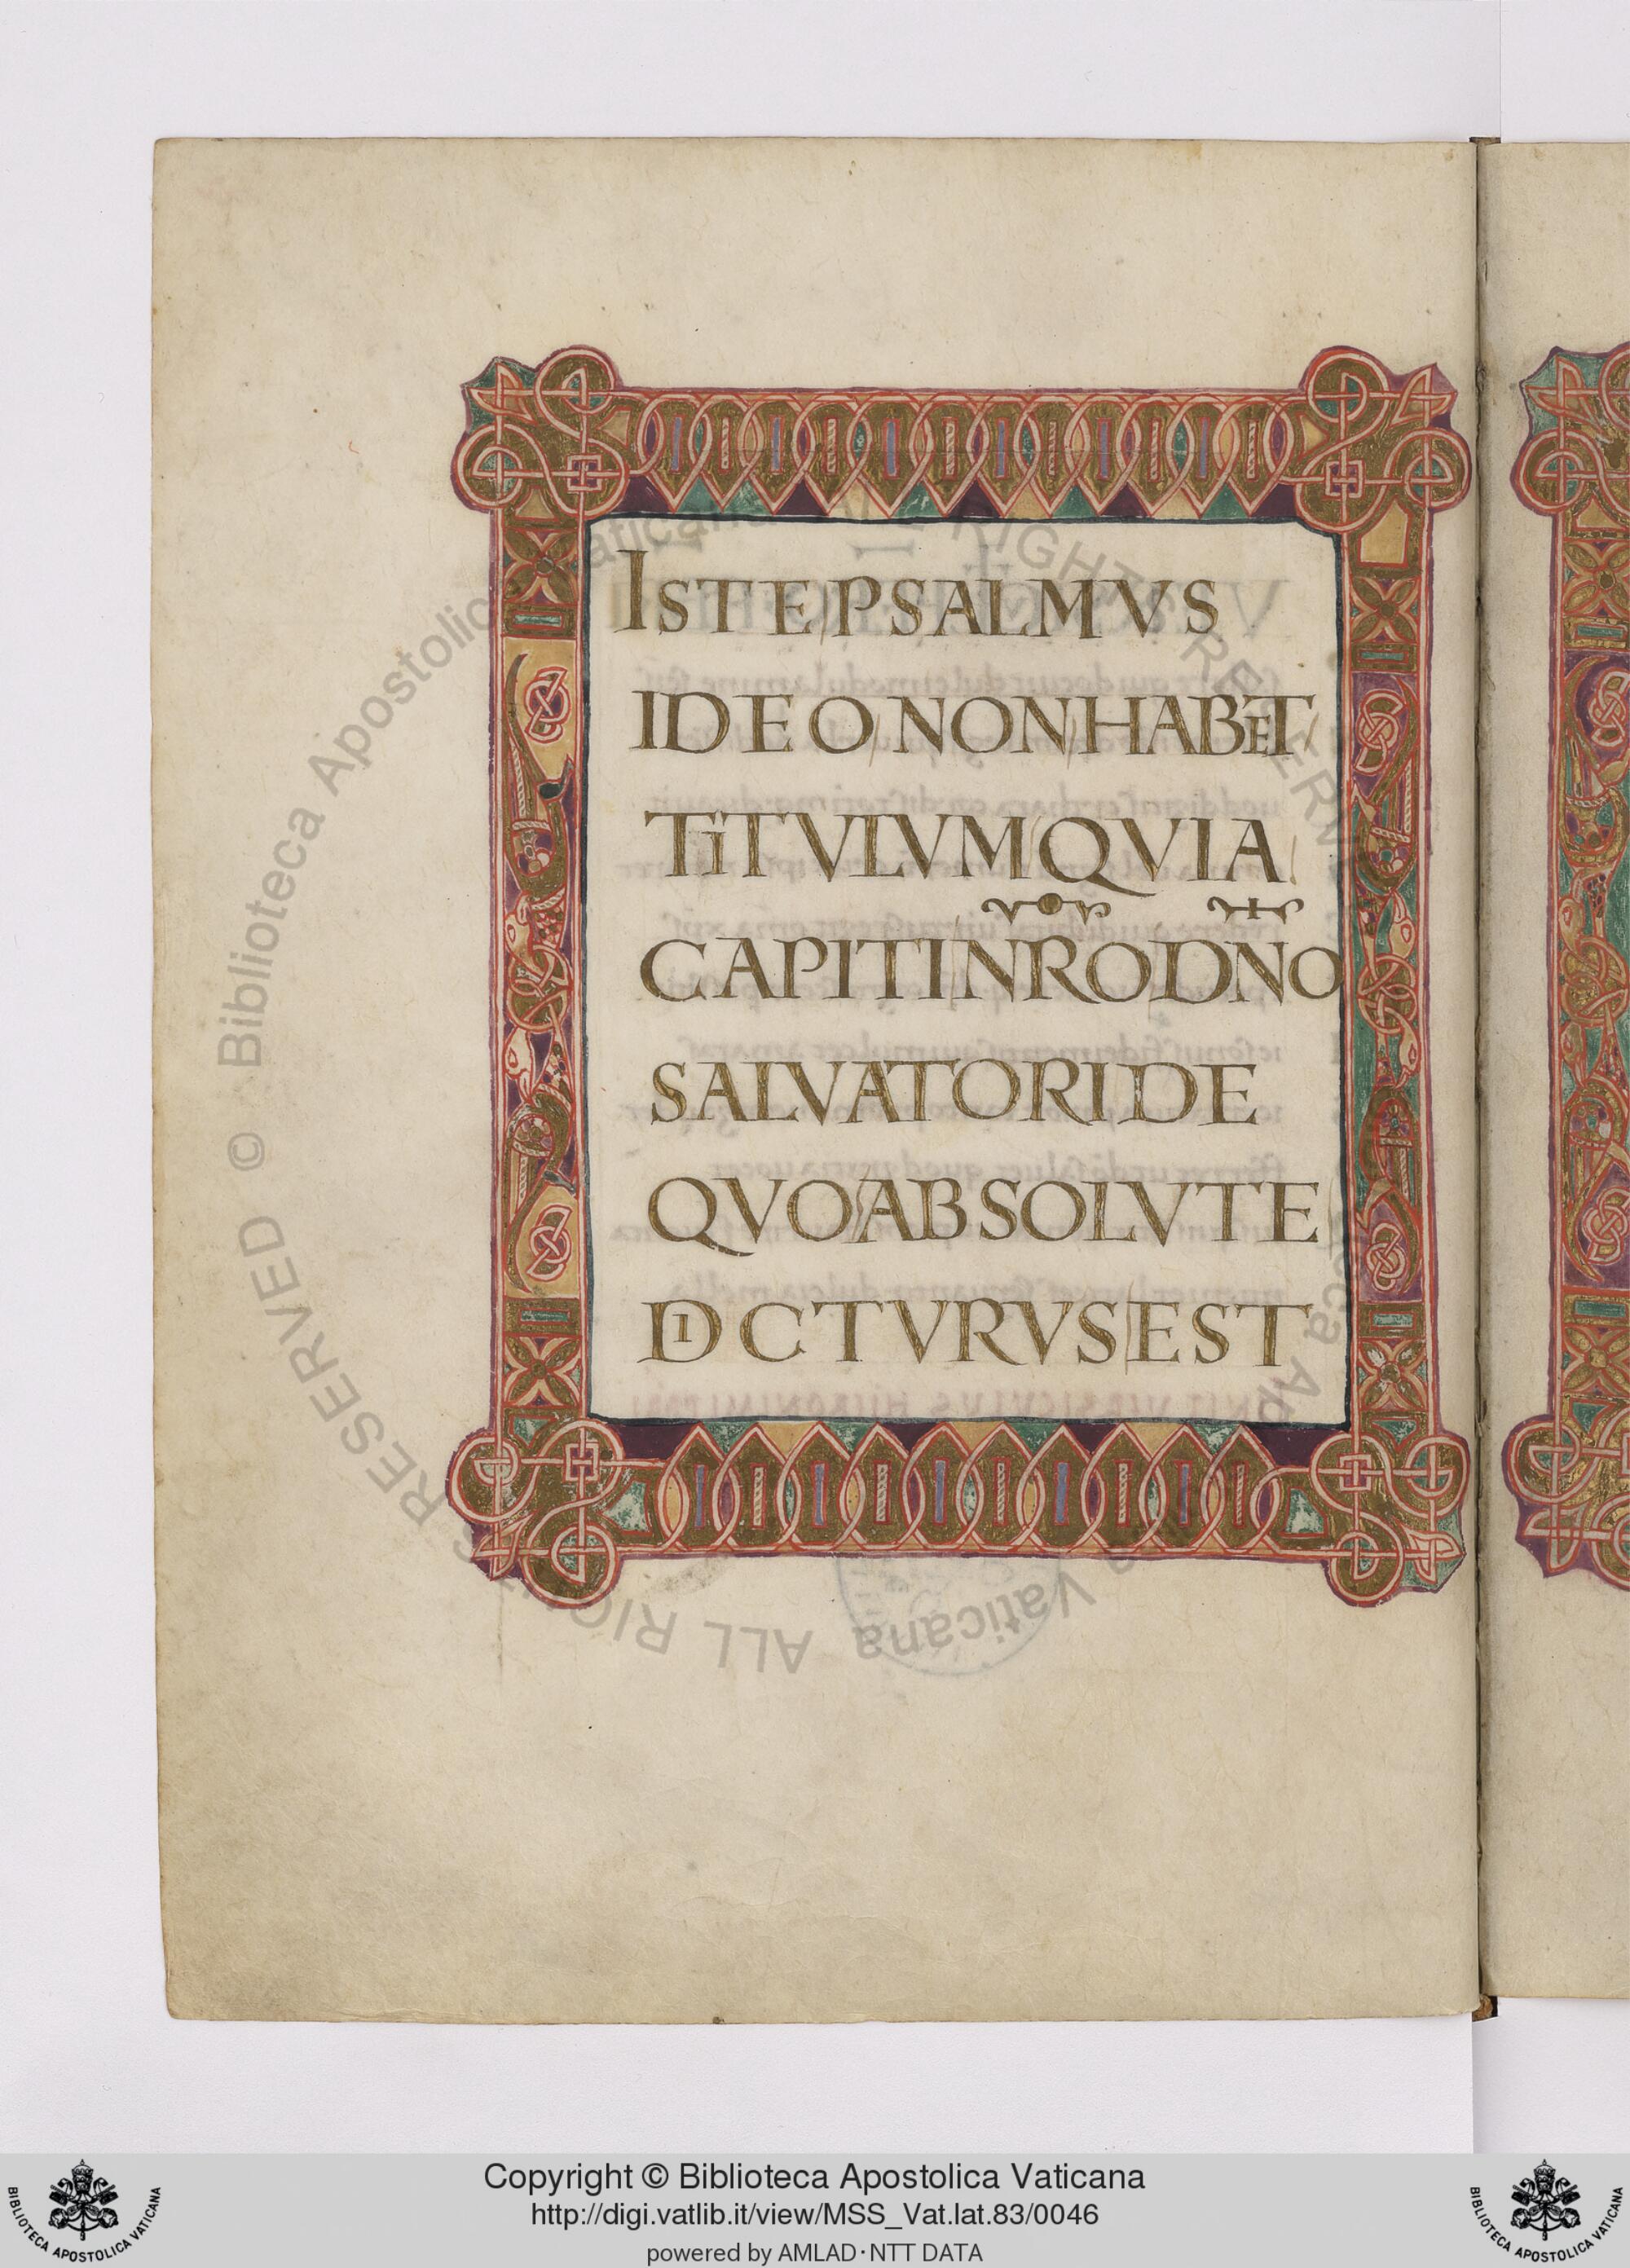 ISTE PSALMVS
IDEO NON HABET
TITVLVM QVIA
CAPITI NRO DNO
SALVATORI DE
QVO ABSOLVTE
DICTVRVS EST
Biblioteca Apostolica Vaticana ALL RIGHTS RESERVED ©
Copyright © Biblioteca Apostolica Vaticana
http://digi.vatlib.it/view/MSS_Vat.lat.83/0046
powered by AMLAD·NTT DATA
BIBLIOTECA APOSTOLICA VATICANA
BIBLIOTECA APOSTOLICA VATICANA